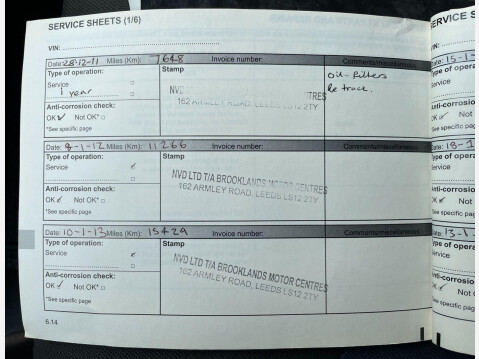 SERVICE SHEETS (1/6)
VIN:
Date: 28-12-11 Miles (Km): 7648 Invoice number: Comments/miscellaneous
Type of operation: Stamp oil-filters
Service
1 year
NVD TRES
162 ARMLEY ROAD, LEEDS LS12 2TY
Anti-corrosion check:
OK ✓ Not OK*
*See specific page
Date: 9-1-12 Miles (Km): 11266 Invoice number: Comments/miscellaneous
Type of operation: Stamp
Service
NVD LTD T/A BROOKLANDS MOTOR CENTRES
162 ARMLEY ROAD, LEEDS LS12 2TY
Anti-corrosion check:
OK ✓ Not OK*
*See specific page
Date: 10-1-13 Miles (Km): 15429 Invoice number: Comments/miscellaneous
Type of operation: Stamp
Service
NVD LTD T/A BROOKLANDS MOTOR CENTRES
162 ARMLEY ROAD, LEEDS LS12 2TY
Anti-corrosion check:
OK ✓ Not OK*
*See specific page
6.14
ERVICE S
VIN:
Date: 15-1-
Type of opera
Service
Anti-corrosio
OK ✓ Not
*See specific pag
Date: 18-1
Type of opera
Service
Anti-corrosio
OK ✓ Not
*See specific pa
Date: 13-1-
Type of opera
Service
Anti-corrosio
OK ✓ Not
*See specific pag